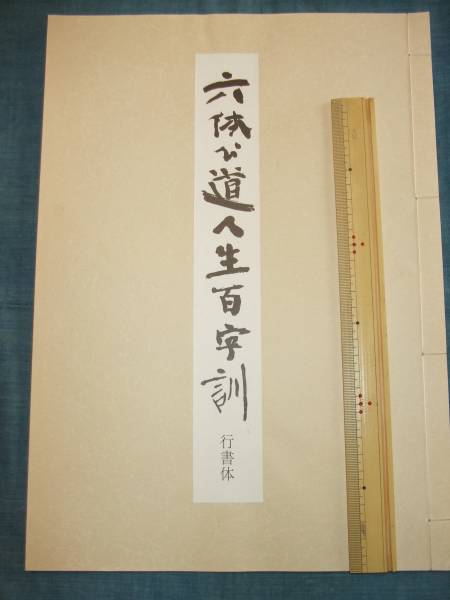 六体公道人生百字訓
行書体